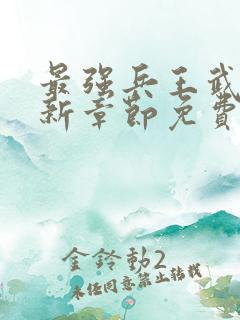 最強兵王武
新章節免費
金鈴動2
未經同意禁止轉載